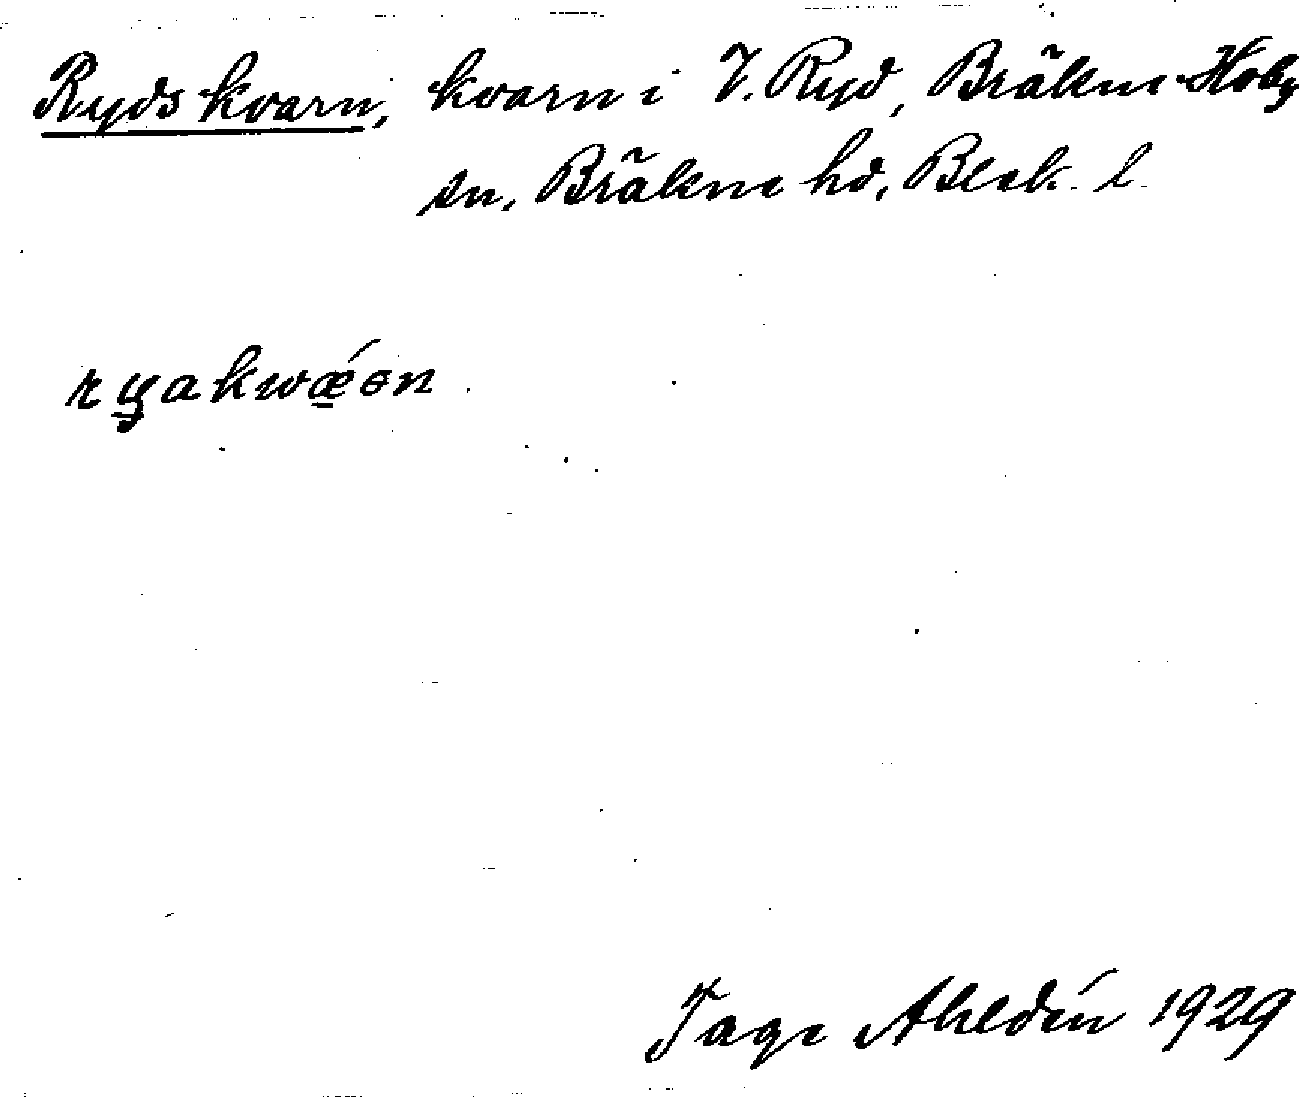 Ryds kvarn, kvarn i V. Ryd, Bräkne-Hoby
sn, Bräkne hd, Blek. l.
ryakwǽən.
Tage Ahldén 1929